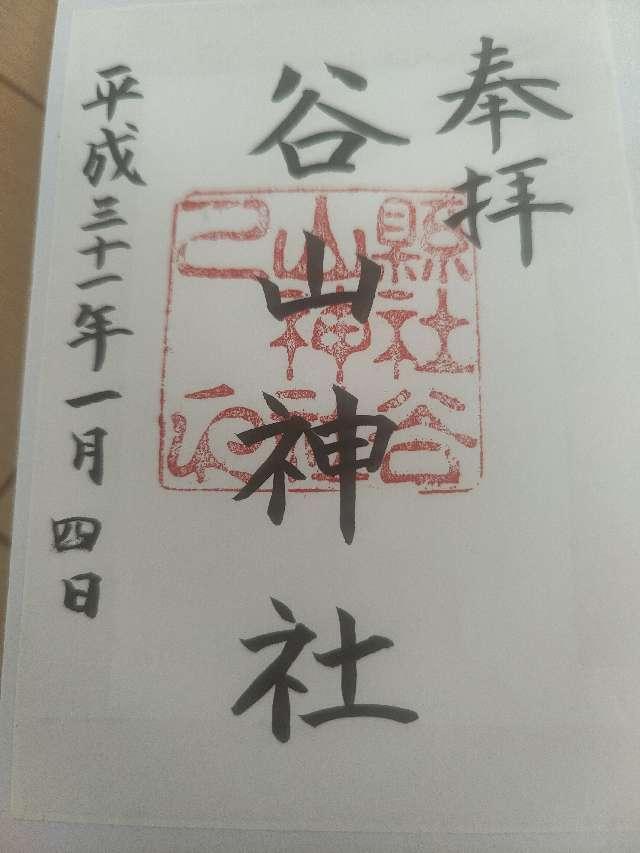 奉拝
谷山神社
縣社谷
山神社
之印
平成三十一年一月四日